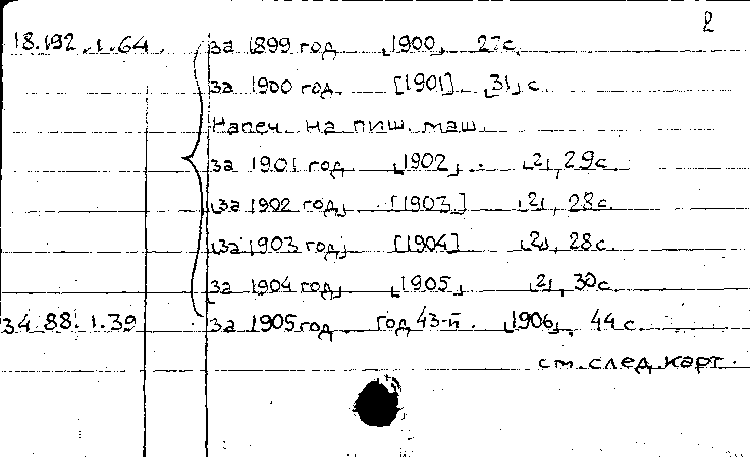 2
18.192.1.64 за 1899 год [1900] 27 с.
за 1900 год. [1901] [31] с.
Напеч. на пиш. маш.
за 1901 год [1902]. [2], 29 с.
[за 1902 год] [1903] [2], 28 с.
[за 1903 год] [1904] [2], 28 с.
[за 1904 год] [1905] [2], 30 с.
34 88.1.39 за 1905 год год 43-й. [1906]. 44 с.
см. след. карт.